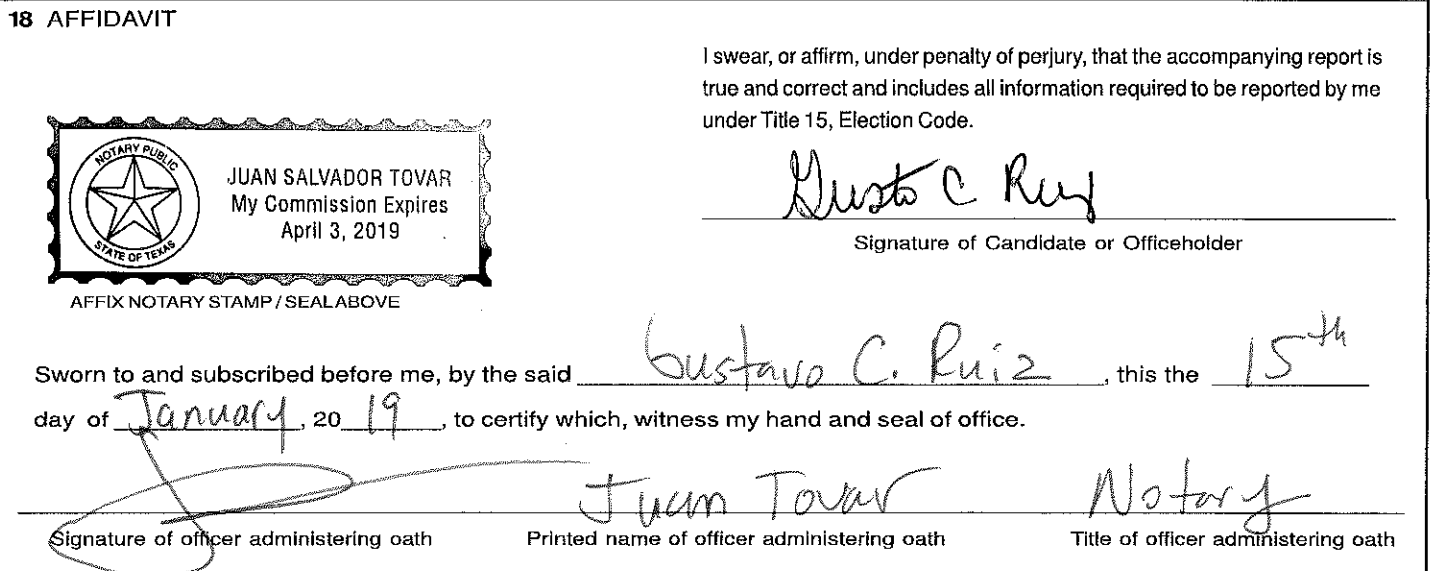 18 AFFIDAVIT
I swear, or affirm, under penalty of perjury, that the accompanying report is
true and correct and includes all information required to be reported by me
under Title 15, Election Code.
NOTARY PUBLIC
STATE OF TEXAS
JUAN SALVADOR TOVAR
My Commission Expires
April 3, 2019
Gusto C Ruiz
Signature of Candidate or Officeholder
AFFIX NOTARY STAMP / SEAL ABOVE
Sworn to and subscribed before me, by the said Gustavo C. Ruiz, this the 15th
day of January, 20 19, to certify which, witness my hand and seal of office.
Juan Tovar Notary
Signature of officer administering oath Printed name of officer administering oath Title of officer administering oath